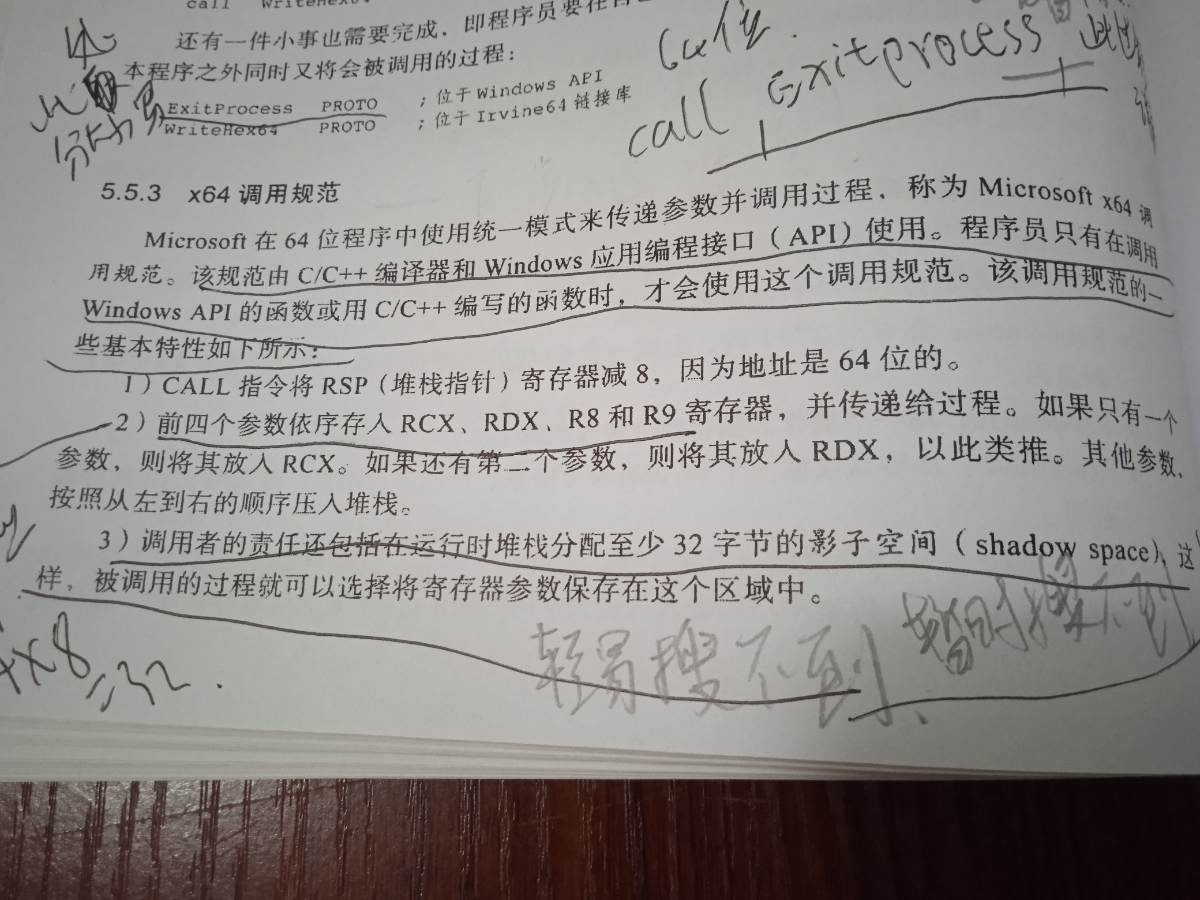 call WriteHex64
还有一件小事也需要完成，即程序员要在
本程序之外同时又将会被调用的过程：
ExitProcess PROTO ；位于Windows API
WriteHex64 PROTO ；位于 Irvine64 链接库
64位.
call ExitProcess
5.5.3 x64 调用规范
Microsoft 在 64 位程序中使用统一模式来传递参数并调用过程，称为 Microsoft x64 调
用规范。该规范由 C/C++ 编译器和 Windows 应用编程接口（API）使用。程序员只有在调用
Windows API 的函数或用 C/C++ 编写的函数时，才会使用这个调用规范。该调用规范的一
些基本特性如下所示：
1）CALL 指令将 RSP（堆栈指针）寄存器减 8，因为地址是 64 位的。
2）前四个参数依序存入 RCX、RDX、R8 和 R9 寄存器，并传递给过程。如果只有一个
参数，则将其放入 RCX。如果还有第二个参数，则将其放入 RDX，以此类推。其他参数，
按照从左到右的顺序压入堆栈。
3）调用者的责任还包括在运行时堆栈分配至少 32 字节的影子空间（shadow space），这
样，被调用的过程就可以选择将寄存器参数保存在这个区域中。
4x8=32.
轻易搜不到
暂时搜不到